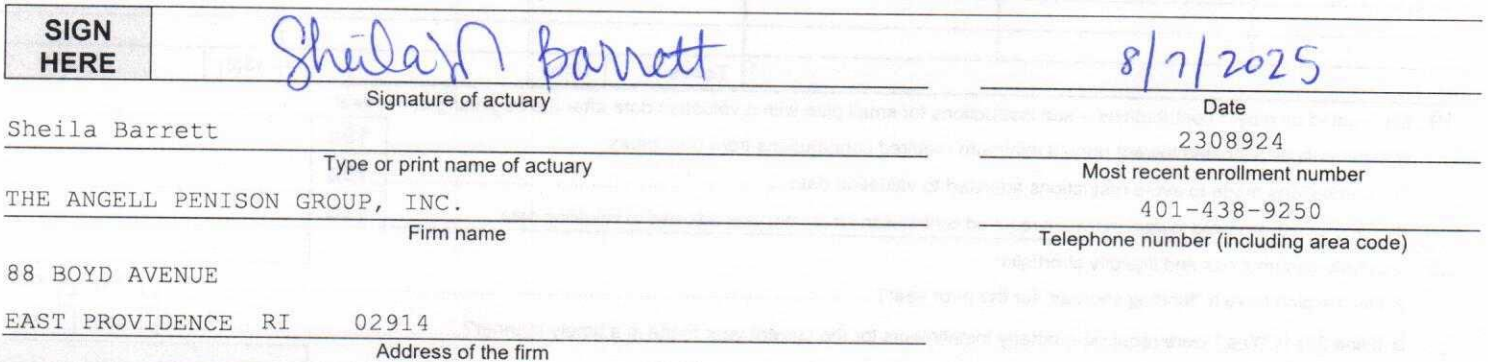 SIGN HERE
Sheila M Barrett 8/7/2025
Signature of actuary Date
Sheila Barrett 2308924
Type or print name of actuary Most recent enrollment number
THE ANGELL PENISON GROUP, INC. 401-438-9250
Firm name Telephone number (including area code)
88 BOYD AVENUE
EAST PROVIDENCE RI 02914
Address of the firm